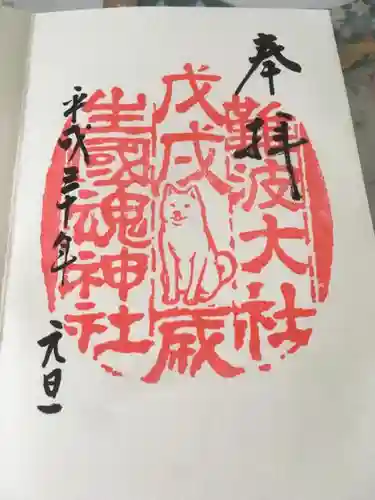 奉拝
難波大社
戊戌歳
生國魂神社
平成三十年
元旦